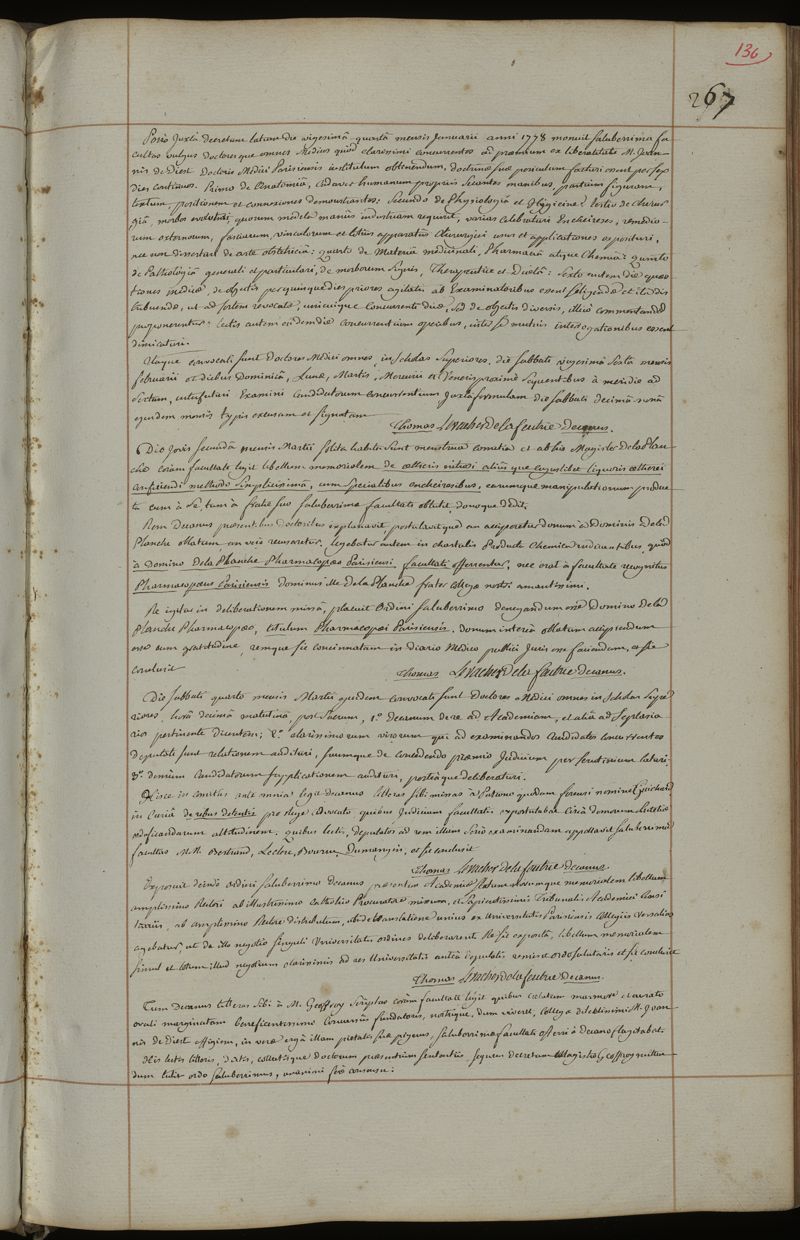 136
267
Porrò Juxtà decretum latum die vigesimâ quartâ mensis Januarii anni 1778 monuit saluberrima fa
cultas vulgus doctoresque omnes Medicos quod clarissimi concurrentes ad præmium ex liberalitate M. Joan
nis de Diest Doctoris Medici Parisiensis institutum obtinendum, doctrinæ suæ periculum facturi essent per sex
dies continuos. Primo de Anatomiâ, cadaver humanum propriis secantes manibus, partium figuram,
textum, positionem et connexiones demonstrantes: Secundo de Physiologiâ et Hygieine: tertio de Chirur
giâ, morbos quorum medela manus industriam requirit, varias celebratiores Encheireses, remedio
rum externorum, fasciarum, vinculorum et totius apparatûs Chirurgici usus et applicationes exposituri,
nec non disserturi de arte obstetriciâ: quarto de Materiâ medicinali, Pharmaciâ atque Chemiâ: quinto
de Pathologiâ generali et particulari, de morborum signis, Therapeutice et Diætâ: sexto autem die quæs
tiones medicæ, de objectis per quinque dies priores agitatis ab Examinatoribus essent seligendæ et
tribuendæ, ut ad sortem revocatæ, unicuique Concurrenti duæ, sed de objectis diversis, illicò commentandæ
proponerentur: lectis autem eâdem die concurrentium operibus, isti se mutuis interrogationibus essent
dimicaturi.
Itaque convocati sunt doctores Medici omnes, in scholas superiores, die sabbati vigesimâ sextâ mensis
februarii et diebus Dominicâ, Lunæ, Martis, Mercurii et Veneris proximè sequentibus à meridie ad
sextam, interfuturi Examini Candidatorum concurrentium juxtà formulam die sabbati decimâ nonâ
ejusdem mensis typis excusam et signatam
Thomas Levacher de la feutrie Decanus.
Die Jovis secundâ mensis Martii solita habita sunt menstrua comitia et ab his Magister de la Plan
che coràm facultate legit libellum memorialem de ætheris nitrosi aliusque cujuslibet liquoris ætherei
conficiendi methodo simplicissimâ, cum specialibus encheiresibus, earumque manipulationum produc
ta cum à se, tum à fratre suo saluberrimæ facultati oblata donoque dedit.
Rem Decanus præsentibus doctoribus explanavit, postulavitque an acciperetur donum à Domino Dela
Planche oblatum, an verò recusaretur. legebatur autem in chartulis Producta Chemica indicantibus, quod
à Domino Dela Planche Pharmacopæo Parisiensi facultati offerrentur, nec erat à facultate recognitus
Pharmacopæus Parisiensis dominus ille Dela Planche frater collegæ nostri amantissimi.
Re igitur in deliberationem missâ, placuit Ordini saluberrimo denegandum esse Domino Dela
Planche Pharmacopæo, titulum Pharmacopæi Parisiensis. donum intereà oblatum accipiendum
esse cum gratitudine, remque sic concinnatam in diario Medico publici juris esse faciendam, et sic
conclusit
Thomas Levacher de la feutrie decanus.
Die sabbati quartâ mensis Martii ejusdem convocati sunt doctores Medici omnes in scholas supe
riores, horâ decimâ matutinâ, post sacrum, 1.º decanum de re ad Academiam, et aliâ ad Seplasia
rios pertinente dicentem; 2.º clarissimorum virorum qui ad examinandos candidatos concurrentes
deputati sunt relationem audituri, suumque de concedendo præmio Judicium per scrutinium laturi,
3.º demùm Candidatorum supplicationem audituri, posteàque deliberaturi.
Hisce in comitiis ante omnia legit decanus litteras sibi missas à Patrono quodam forensi nomine Guichard
in Curiâ de rebus detentis pro rege advocato quibus Judicium facultatis expostulabat circà domorum Lutetiæ
ædificandarum altitudinem: quibus lectis, deputatos ad rem illam seriò examinandam appellavit saluberrima
facultas MM. Bertrand, Leclerc, Bourru, Dumangin, et sic conclusit
Thomas Levacher de la feutrie Decanus.
Exposuit deindè ordini saluberrimo Decanus præsentis Academiæ statum novumque memorialem libellum
amplissimo Rectori ab illustrissimo Catholico Procuratore missum, et Sapientissimis Tribunalis Academici Consi
liariis, ab amplissimo Rectore distributum, ubi de translatione unius ex Universitatis Parisiensis collegiis Versalias
agebatur, ut de illo negotio singuli Universitatis ordines deliberarent. Re sic expositâ, libellum memorialem
simul et totum illud negotium clarissimis ad res Universitatis anteà deputatis remisit ordo salutaris et sic conclusit
Thomas Levacher de la feutrie Decanus.
Tum decanus litteras sibi à M. Geoffroy scriptas coràm facultate legit quibus cælatam marmore et aurato
orculi marginatam beneficentissimi concursûs fundatoris, nostrique, dum viveret, collegæ dilectissimi M. Joan
nis de Diest effigiem, in veræ ergà illam pietatis suæ pignus, saluberrimæ facultati offerri à decano flagitabat.
His lectis litteris, datis, collectisque doctorum præsentium sententiis sequens decretum Magistro Geoffroy mitten
dum tulit ordo saluberrimus, unanimi sic consensu: